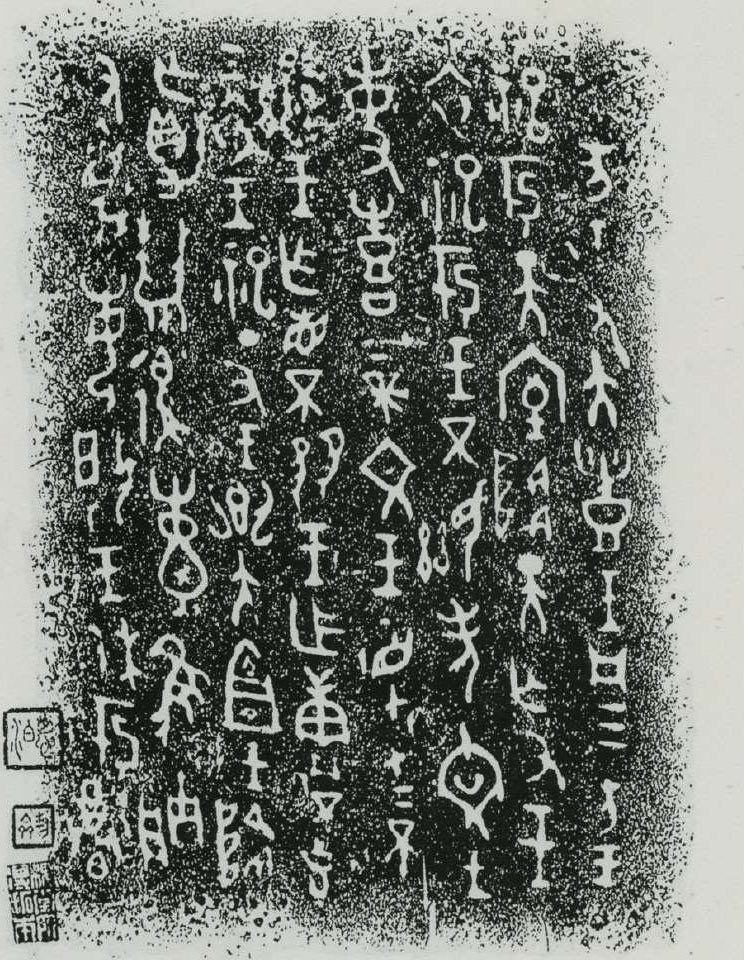 亥王又大豐王凡三方王
祀于天室降天亡又王
衣祀于王不顯考文王
事喜上帝文王監才上不
顯王乍省不王乍庚不克
三衣王祀丁丑王鄉大宜王降
亡爵隹朕
又每揚王休于尊